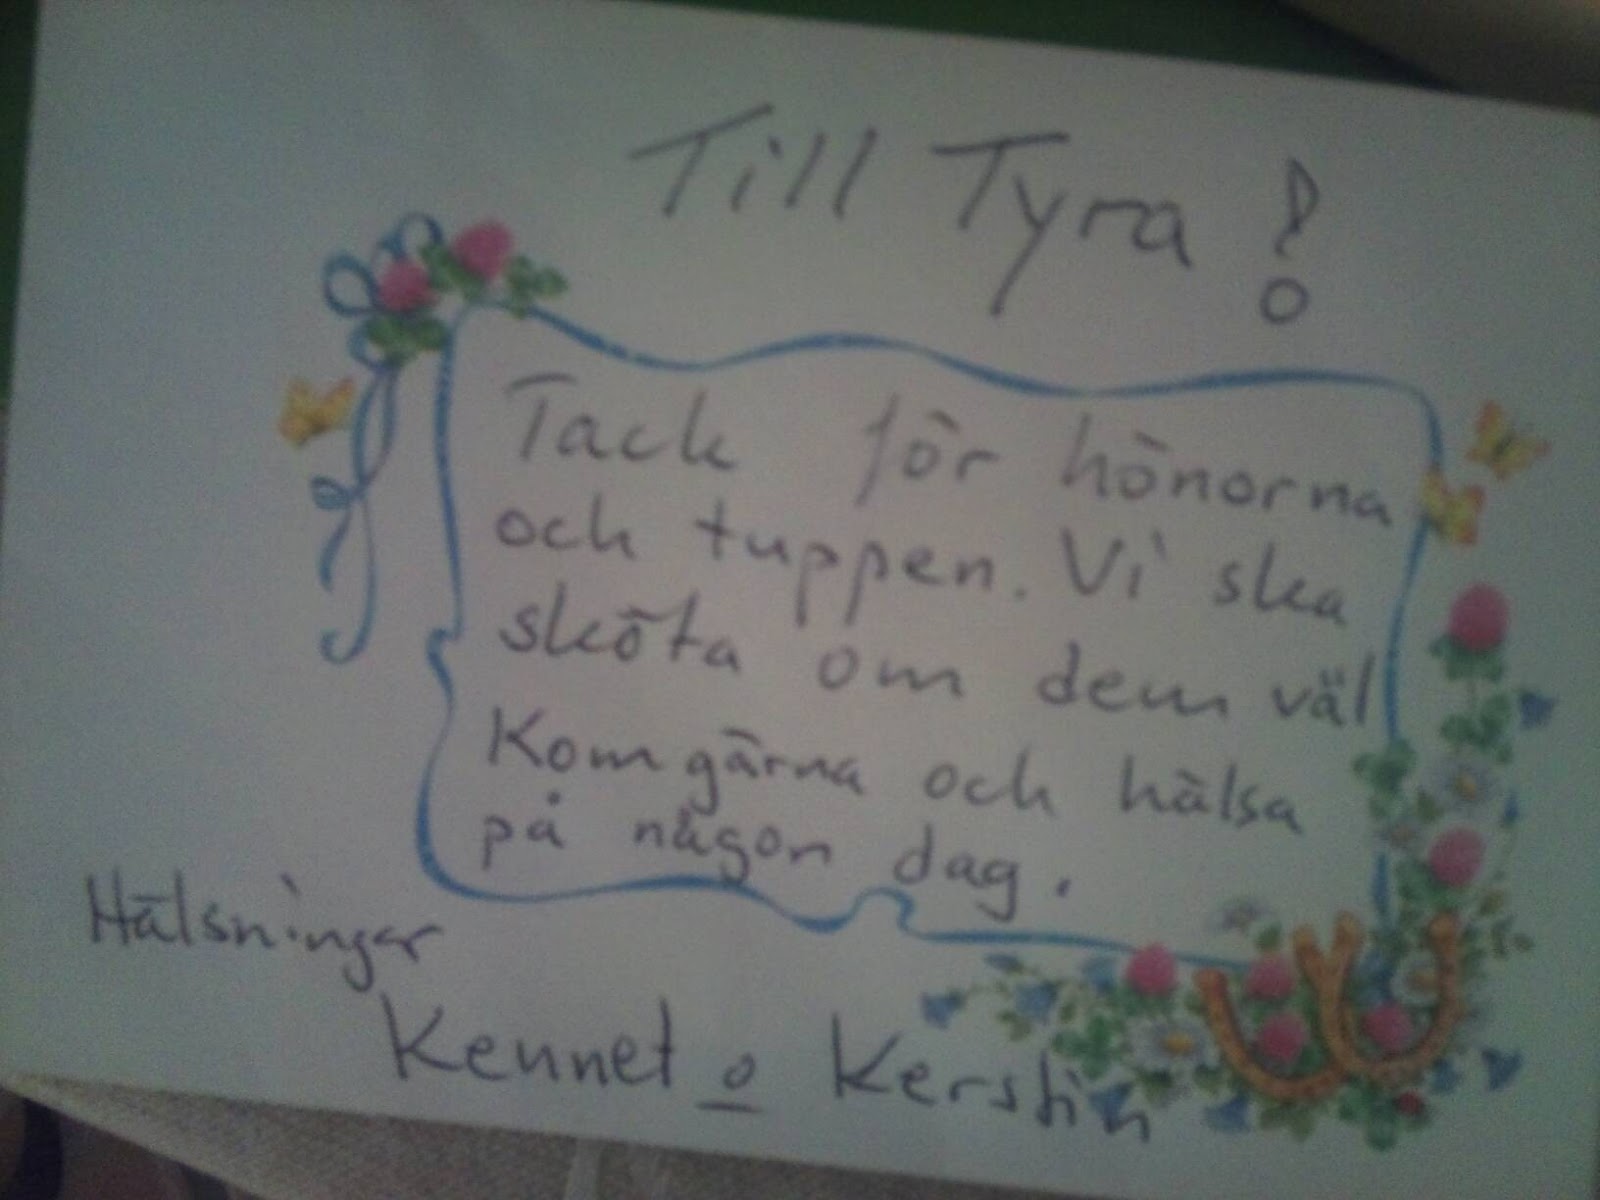 Till Tyra!
Tack för hönorna
och tuppen. Vi ska
sköta om dem väl
Kom gärna och hälsa
på någon dag.
Hälsningar
Kennet o Kerstin